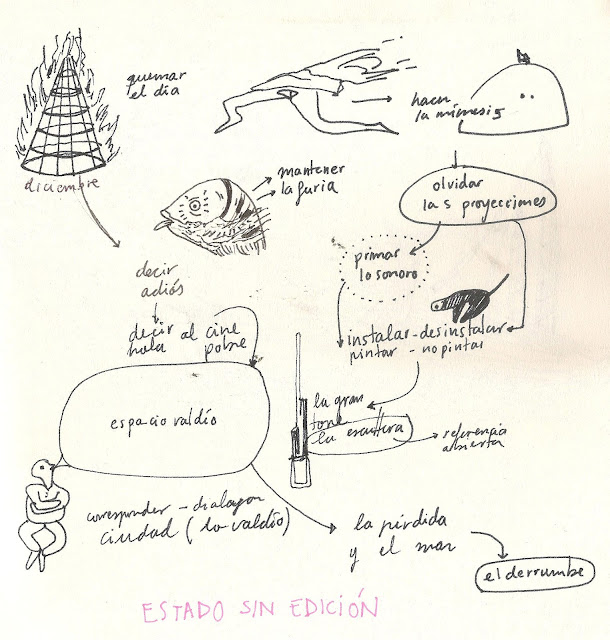 quemar
el día
hacer
la mímesis
diciembre
mantener
la furia
olvidar
las proyecciones
primar
lo sonoro
decir
adiós
decir
hola al cine
pobre
instalar-desinstalar
pintar - no pintar
la gran
torre
la escritura
referencia
abierta
espacio valdío
corresponder - dialogar
ciudad (lo valdío)
la pérdida
y el mar
el derrumbe
ESTADO SIN EDICIÓN